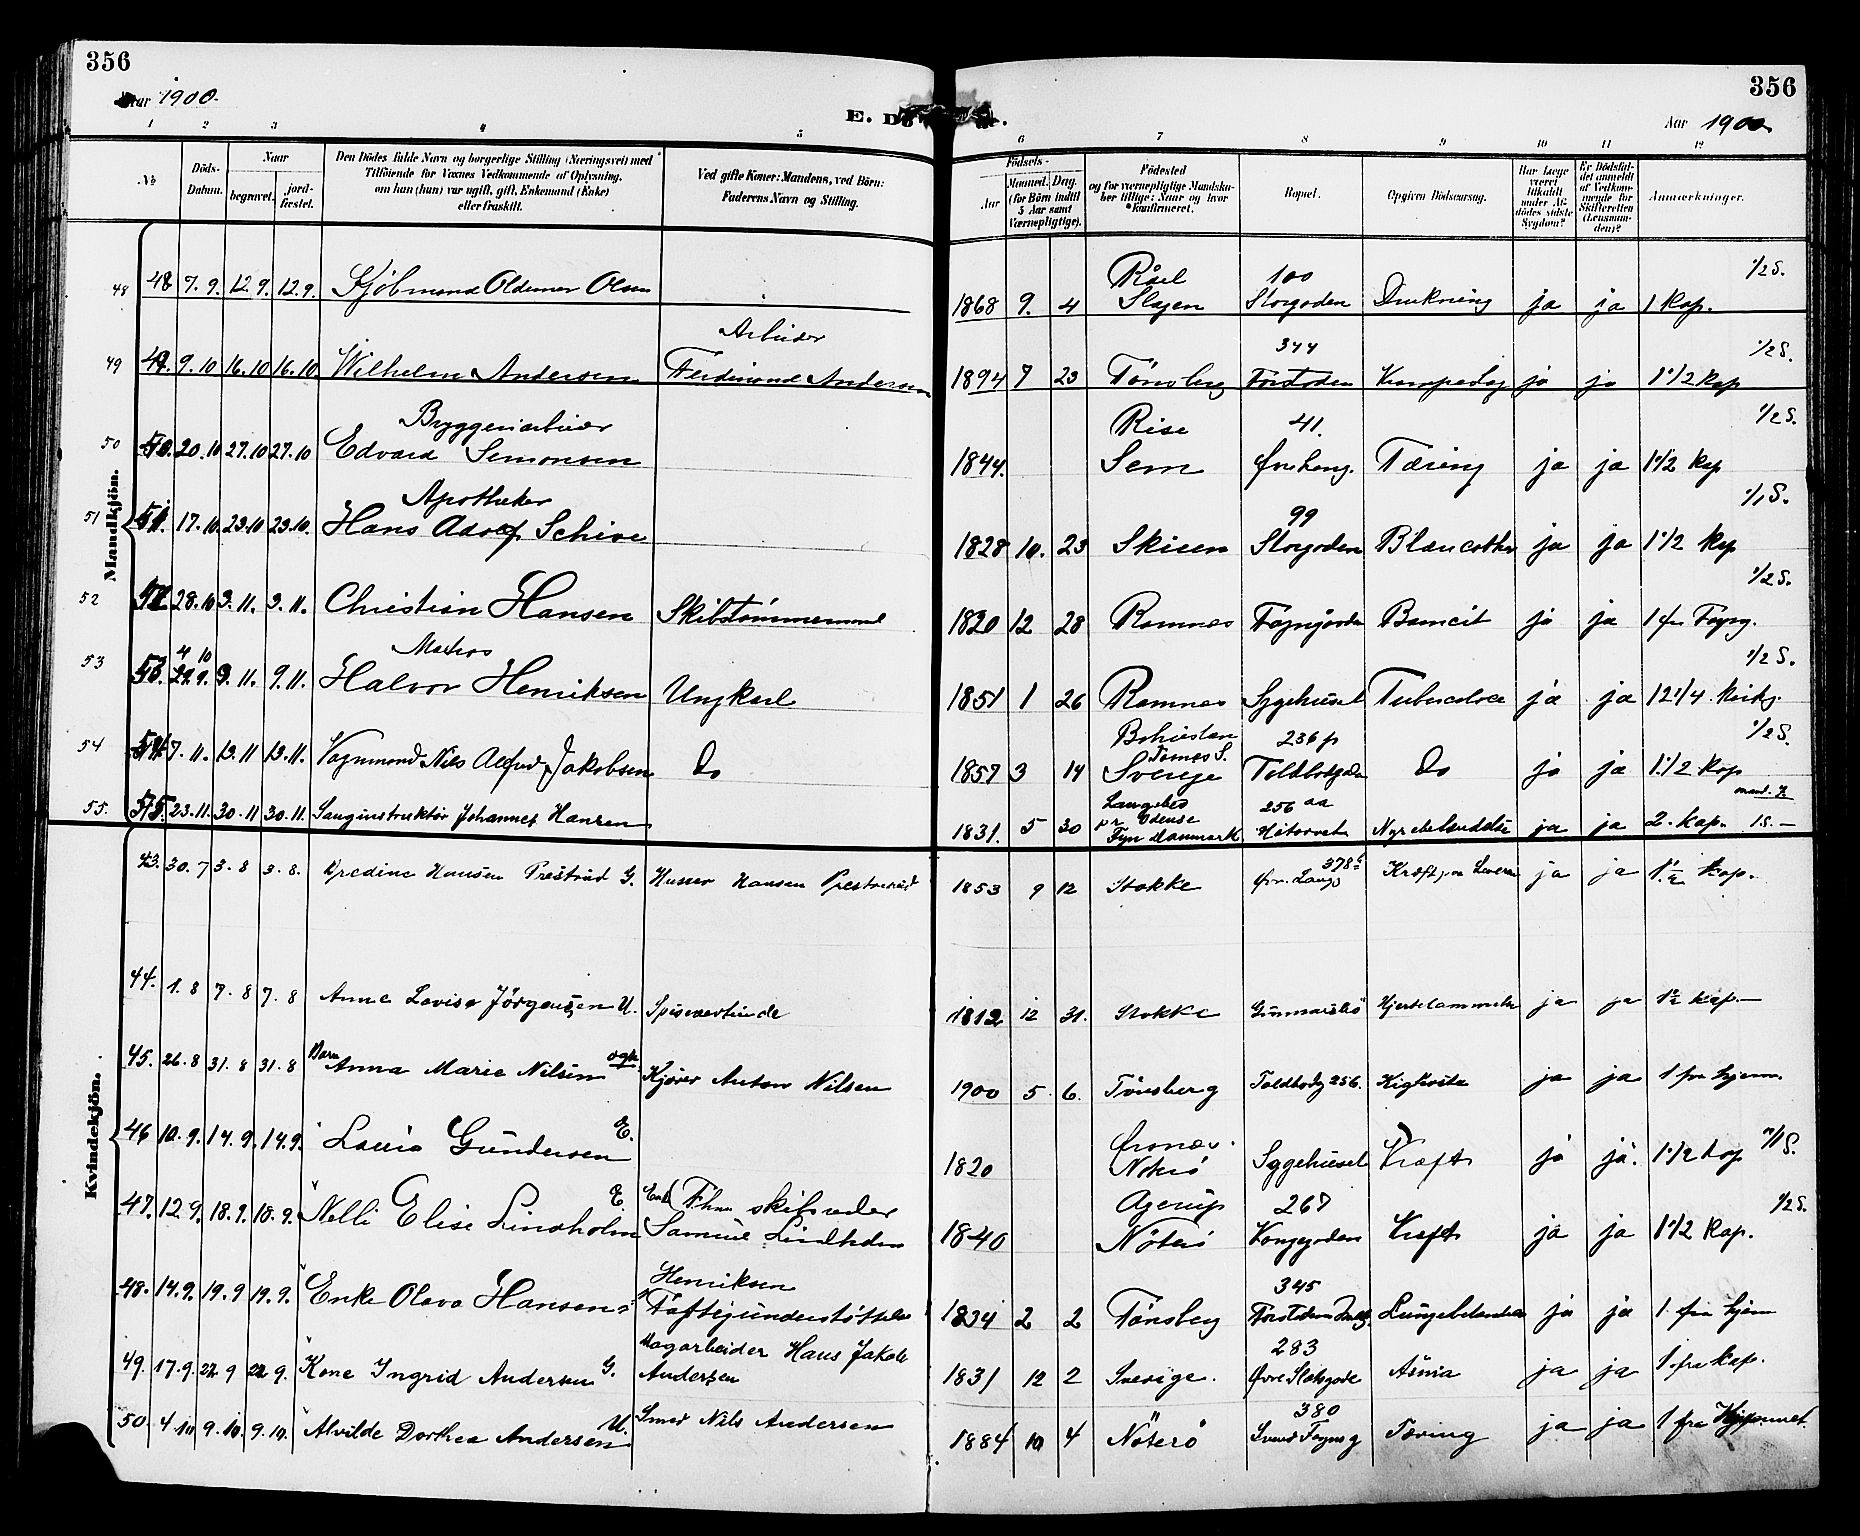 356
356
Aar 1900.
Aar 1900
E. Dö
1 2 3 4 5 6 7 8 9 10 11 12
No
Döds-
Datum.
Naar
begravet.
jord-
fæstet.
Den Dödes fulde Navn og borgerlige Stilling (Næringsvei) med
Tilföiende for Voxnes Vedkommende af Oplysning,
om han (hun) var ugift, gift, Enkemand (Enke)
eller fraskilt.
Ved gifte Koner: Mandens, ved Börn:
Faderens Navn og Stilling.
Födsels-
Aar
Maaned. Dag.
(for Börn indtil
5 Aar samt
Værnepligtige).
Födested
og for værnepligtige Mandska-
ber tillige: Naar og hvor
*Konfirmeret.
Bopæl.
Opgiven Dödsaarsag.
Har Læge
været
tilkaldt
under Af-
dödes sidste
Sygdom?
Er Dödsfal-
det anmeldt
af Vedkom-
mende for
Skifteretten
(Lensman-
den)?
Anmærkninger.
Mandkjön.
48 48 7. 9. 12. 9. 12. 9. Kjöbmand Oldemar Olsen
1868 9. 4 Råel Slagen 100 Storgaden Drukning ja ja 1 Kap. 1/2 S.
49 49. 9. 10 16. 10 16. 10 Wilhelm Andersen Arbeider Ferdinand Andersen
1894 7 23 Tönsberg 344 ja ja 1 1/2 kap 1/2 S.
50 50. 20. 10 27. 10 27. 10 Bryggeriarbeider Edvard Semonsen
1844. Rise Sem 41. Øvre Lang. Tæring ja ja 1 1/2 kap 1/2 S.
51 51. 17. 10. 23. 10 23. 10. Apotheker Hans Adolf Schive
1828 10. 23 Skieen 99 Storgaden ja ja 1 1/2 kap 1/1 S.
52 52 28. 10 3. 11. 3. 11. Christian Hansen Skibstömmermand
1820 12 28 Ramnes ja ja 1 fra 1/2 S.
53 53. 4 10 29. 9. 9. 11. 9. 11. Matros Halvor Henriksen Ungkarl
1851 1 26 Ramnes Sygehuset ja ja 12 1/4 1/2 S.
54 54 7. 11. 13. 11 13. 11. Vognmand Nils Alfred Jakobsen Do
1857 3 14 Tanos S. Sverige 236 Do ja ja 1 1/2 kap 1/2 S.
55. 55. 23. 11. 30. 11 30. 11. Sanginstruktör Johannes Hansen
1831. 5 30 pr Odense Fyn Danmark 256 aa Nyrebetændelse ja ja 2. kap. 1 S. —
Kvindekjön.
43. 30. 7 3. 8 3. 8. Hansen G. Hansen
1853 9 12 Stokke 378 ja ja 1 1/2 kap.
44. 1. 8 7. 8 7. 8 Anne Lovise Jörgensen U. Spiseværtinde
1812 12 31. Stokke Hjertelammelse ja ja 1 1/2 kap.
45. 26. 8 31. 8 31. 8 Barn Anna Marie Nilsen Kjörer Anton Nilsen
1900 5 6. Tönsberg Toldbodg 256. Kighoste ja ja 1 fra hjem.
46 10. 9. 14. 9. 14. 9. Gundersen E.
1820 Nöterö Sygehuset Kræft ja ja. 1 1/2 kap
47. 12. 9. 18. 9. 18. 9. Nelli Elise Lindholm E. skibsreder
1840 Agerup Nöterö 267 Kongegaden Kræft ja ja 1 1/2 kap. 1/2 S.
48. 14. 9. 19. 9 19. 9. Enke Olava Hansen Henriksen Fattigunderstöttelse
1834 2 2 Tönsberg 345 Lungebetændelse ja ja 1. fra hjem
49. 17. 9. 22. 9 22. 9. Kone Ingrid Andersen G. Dagarbeider Hans Jakob Andersen
1831 12 2 Sverige. 283 Øvre Slotsgade Asma ja ja 1. fra kap.
50. 4. 10 9. 10. 9. 10. Alvilde Dorthea Andersen U. Smed Nils Andersen
1884 10 4 Nöterö 380 Svend Foyns g Tæring ja ja 1 fra Hjemmet